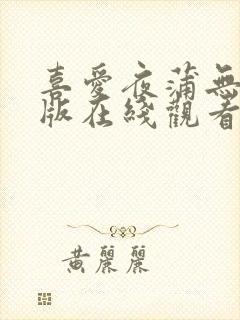 喜愛夜蒲無
版在綫觀看
黃麗麗